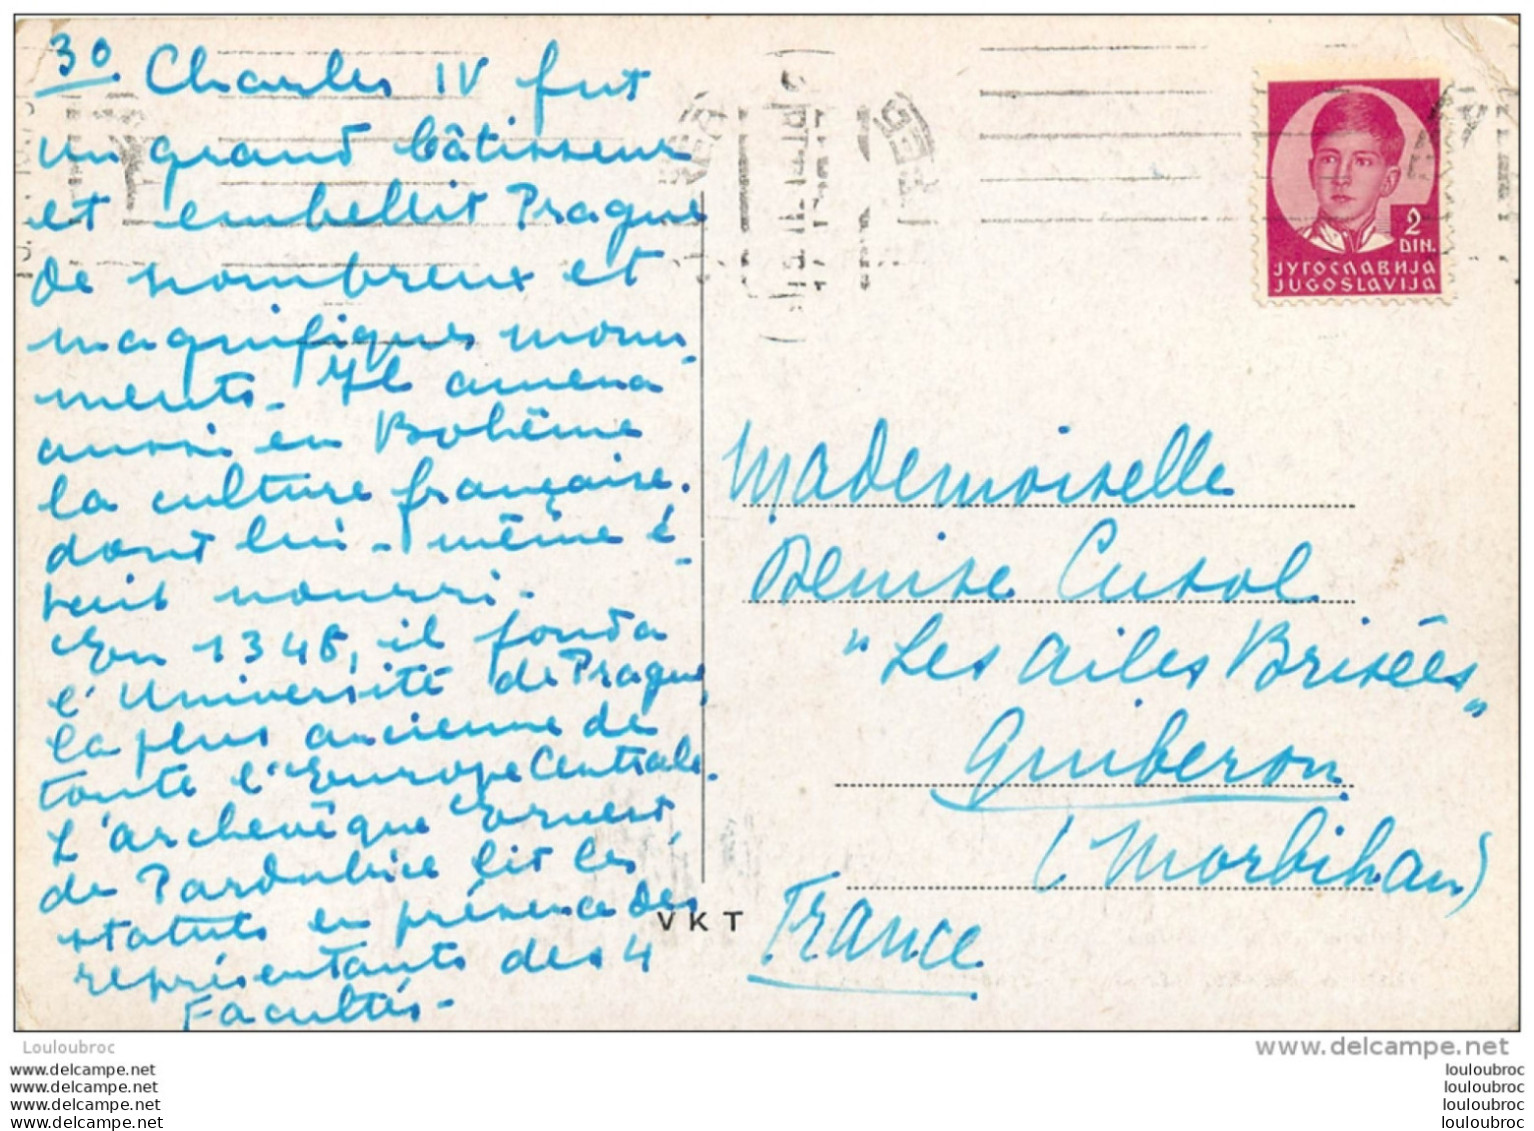 30 Charles IV fut
un grand bâtisseur
et embellit Prague
de nombreux et
magnifiques monu-
ments. Il amena
aussi en Bohême
la culture française.
dont lui-même é-
tait nourri.
En 1348, il fonda
l'Université de Prague,
la plus ancienne de
toute l'Europe Centrale.
L'archevêque Ernest,
de Pardubice lit les
statuts en présence des
représentants des 4
Facultés.
VKT
2
DIN.
ЈУГОСЛАВИЈА
JUGOSLAVIJA
Mademoiselle
Denise Cusol
"Les Ailes Brisées"
Quiberon
(Morbihan)
France
Louloubroc
www.delcampe.net
www.delcampe.net
www.delcampe.net
www.delcampe.net
www.delcampe.net
louloubroc
louloubroc
louloubroc
louloubroc